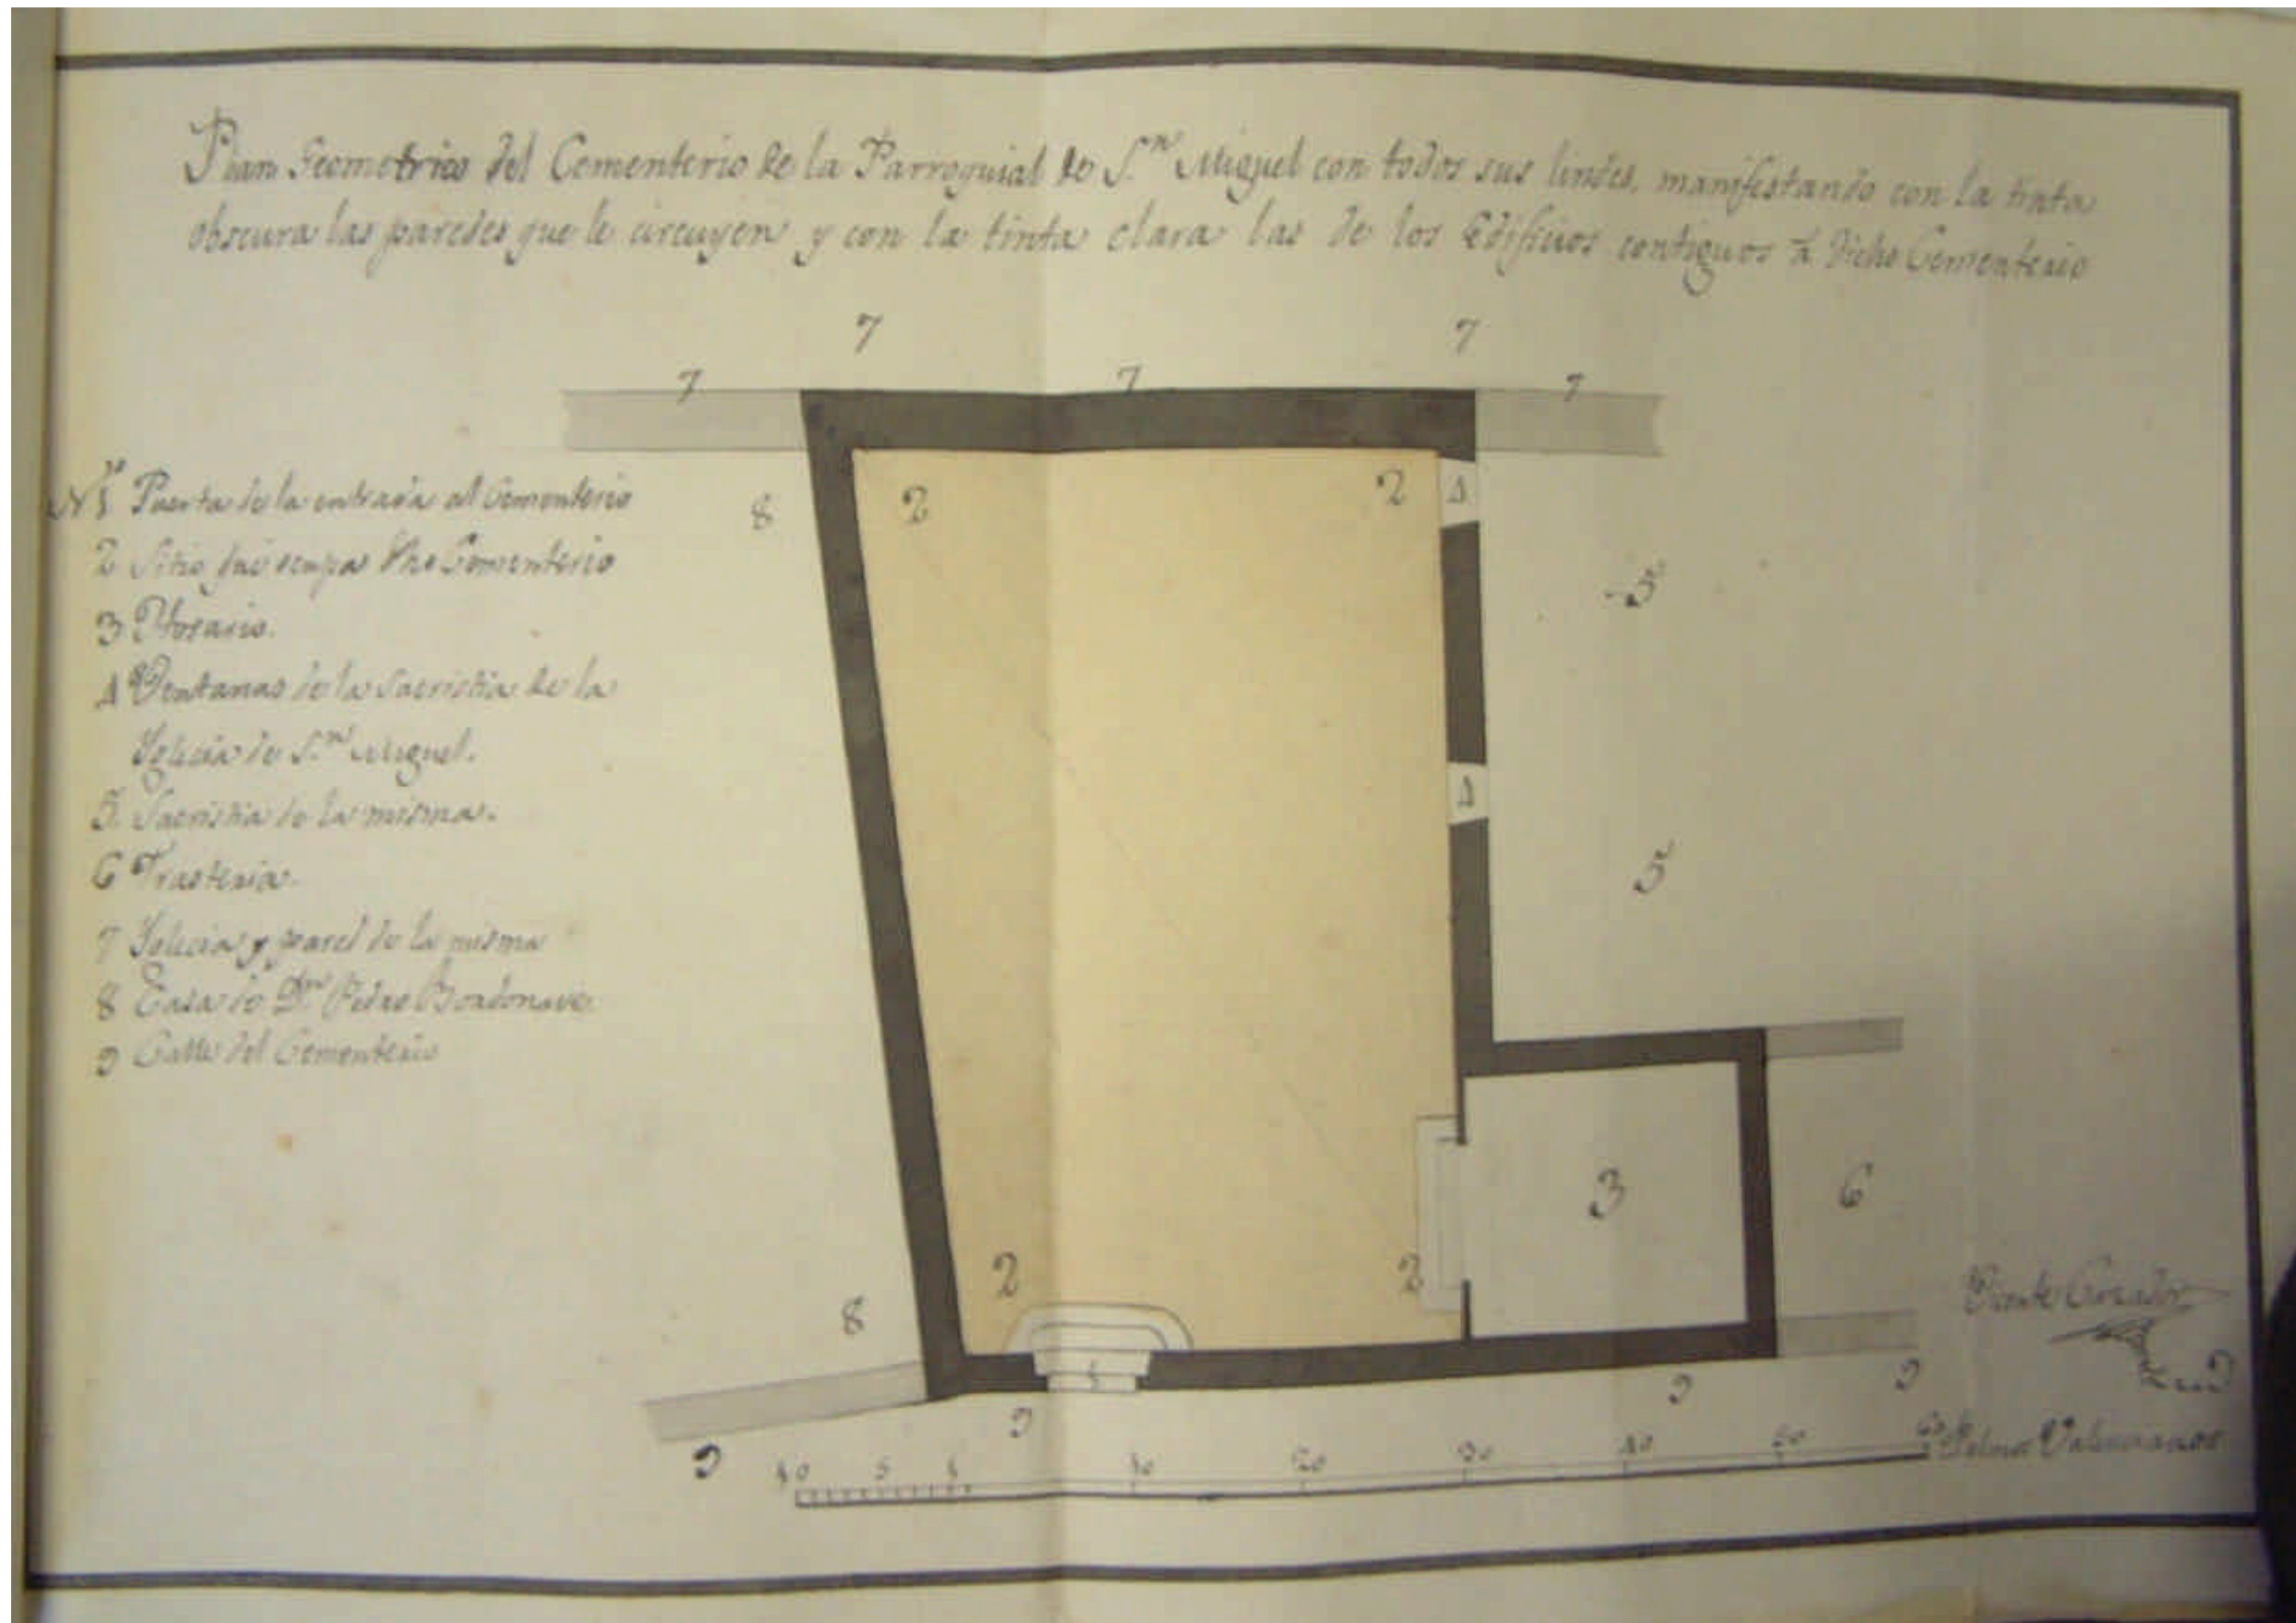 Plan Geometrico del Cementerio de la Parroquial de S.n Miguel con todos sus lindes, manifestando con la tinta
obscura las paredes que le circuyen y con la tinta clara las de los Edificios contiguos à dicho Cementerio
7 7
7 7 7
N.º 1. Puerta de la entrada al Cementerio
8 2 2 4
2 Sitio que ocupa dho Cementerio
5
3 Hosario.
4 Ventanas de la Sacristia de la
Iglecia de S.n Miguel.
4
5. Sacristia de la misma.
5
6 Trasteria.
7 Iglecia y pared de la misma
8 Casa de Dn. Pedro Bordonave.
9 Calle del Cementerio
3 6
2 2
8
Vicente
1
9 9 9
9
10 5 1 10 20 30 40 50 60 Palmos Valencianos